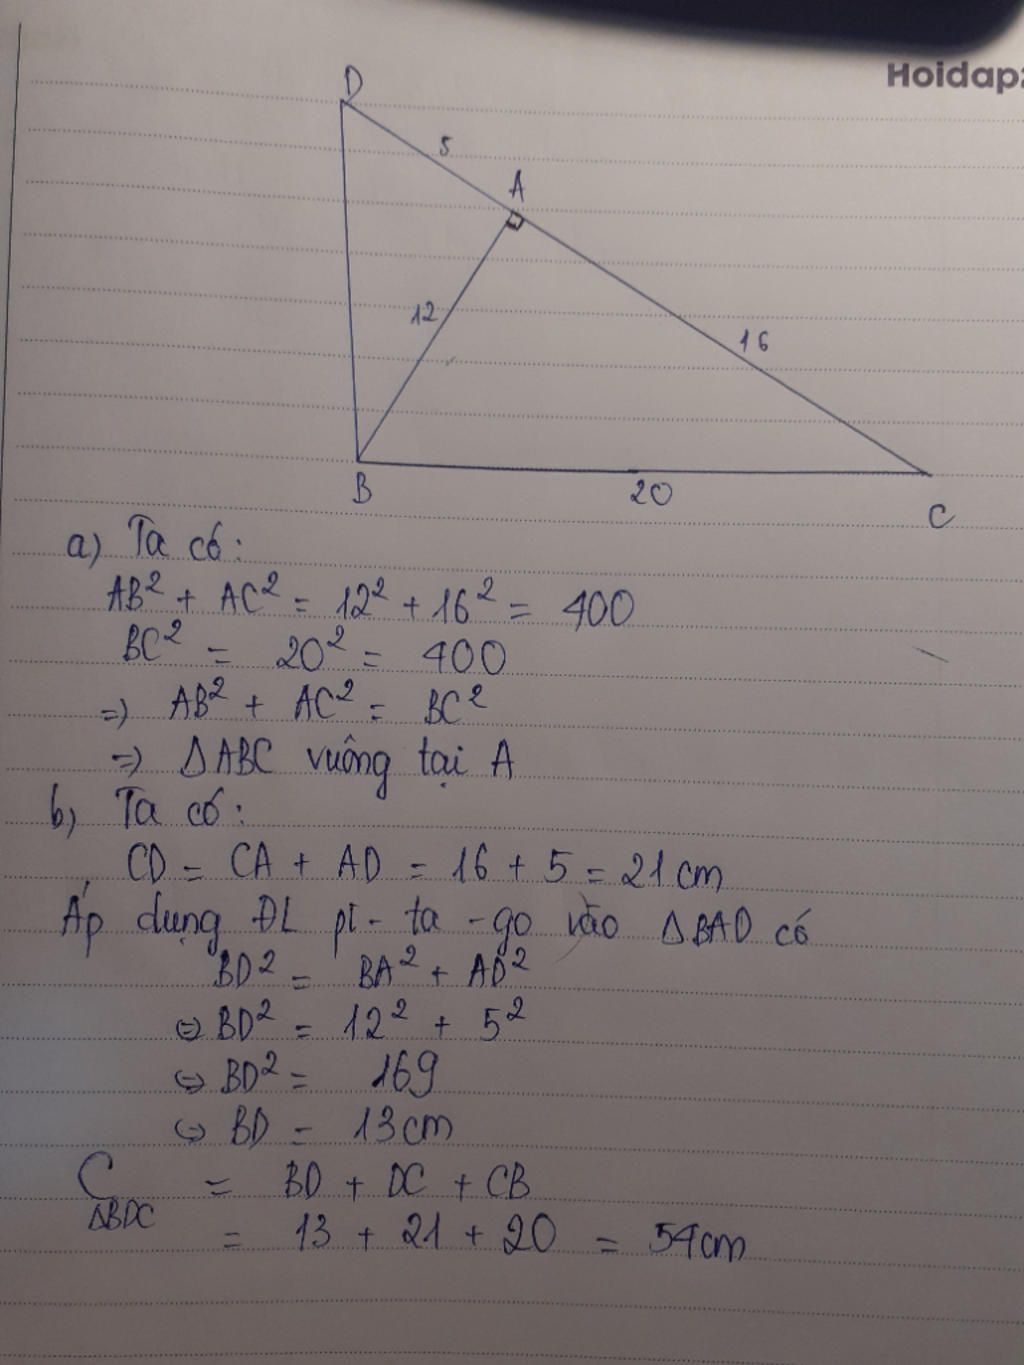 Hoidap
D
5
A
12
16
B
20
C
a) Ta có:
AB² + AC² = 12² + 16² = 400
BC² = 20² = 400
=> AB² + AC² = BC²
=> ΔABC vuông tại A
b) Ta có:
CD = CA + AD = 16 + 5 = 21cm
Áp dụng ĐL pi-ta-go vào ΔBAD có
BD² = BA² + AD²
⇔ BD² = 12² + 5²
⇔ BD² = 169
⇔ BD = 13cm
C ΔBDC = BD + DC + CB
= 13 + 21 + 20 = 54cm